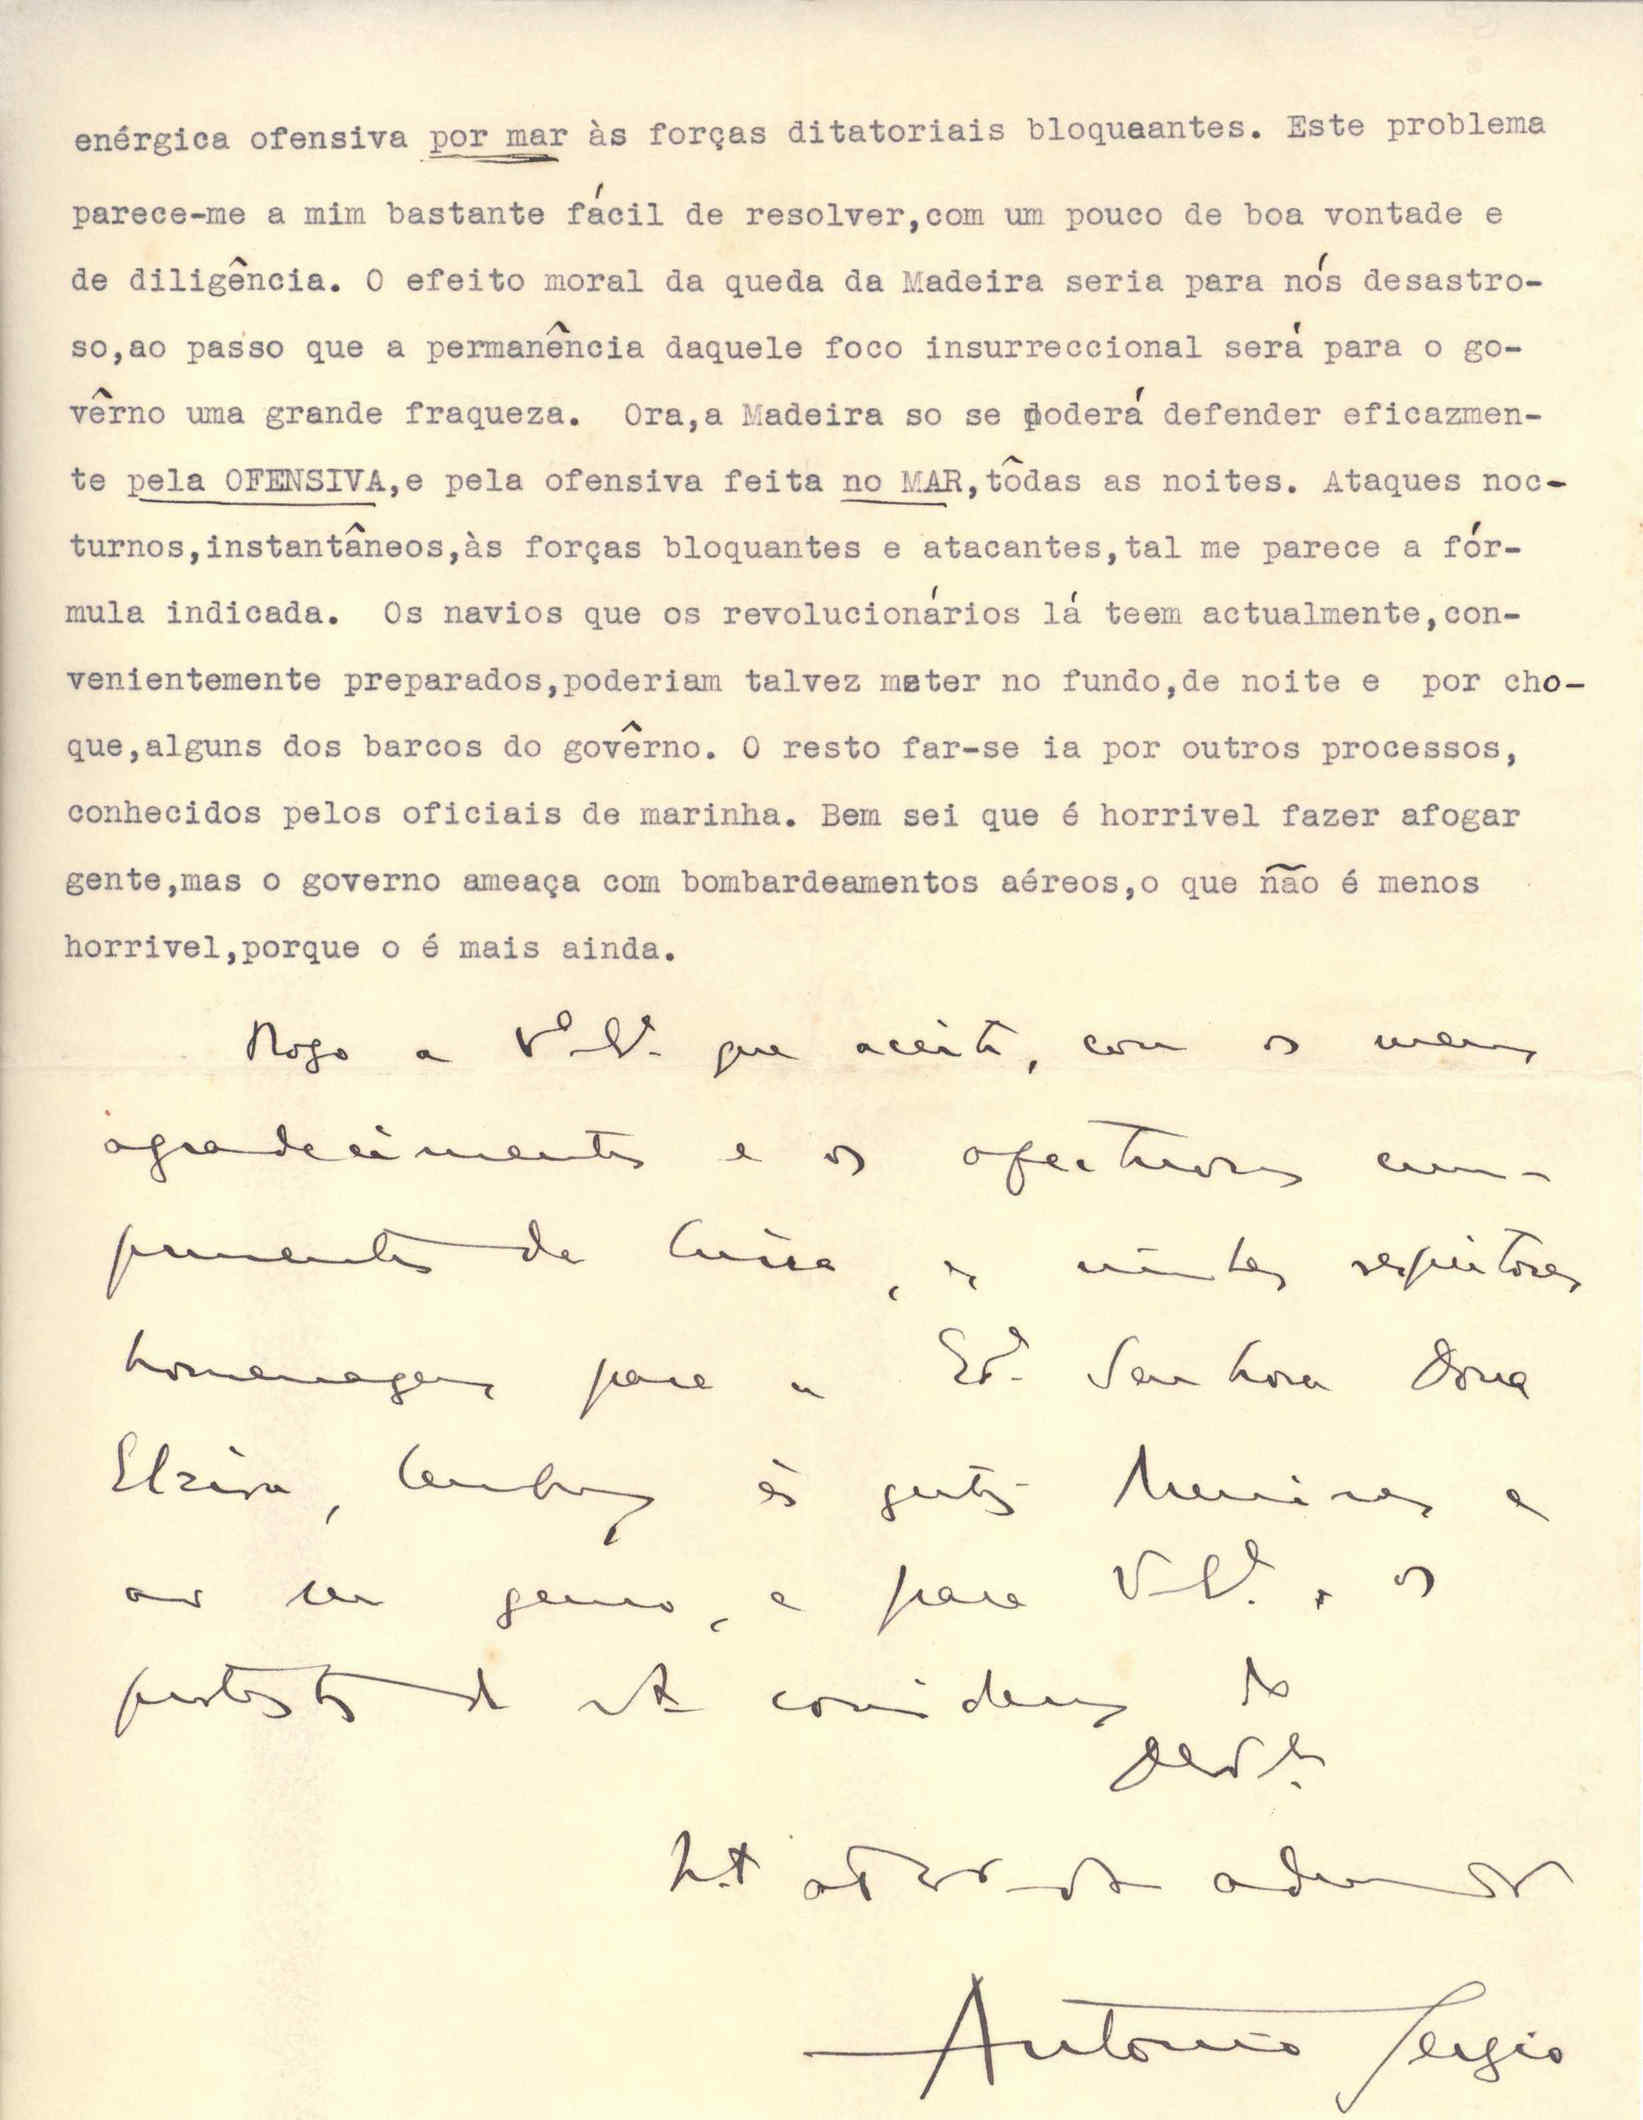 enérgica ofensiva por mar às forças ditatoriais bloqueantes. Este problema
parece-me a mim bastante fácil de resolver,com um pouco de boa vontade e
de diligência. O efeito moral da queda da Madeira seria para nós desastro-
so,ao passo que a permanência daquele foco insurreccional será para o go-
vêrno uma grande fraqueza. Ora,a Madeira so se poderá defender eficazmen-
te pela OFENSIVA,e pela ofensiva feita no MAR,tôdas as noites. Ataques noc-
turnos,instantâneos,às forças bloquantes e atacantes,tal me parece a fór-
mula indicada. Os navios que os revolucionários lá teem actualmente,con-
venientemente preparados,poderiam talvez meter no fundo,de noite e por cho-
que,alguns dos barcos do govêrno. O resto far-se ia por outros processos,
conhecidos pelos oficiais de marinha. Bem sei que é horrivel fazer afogar
gente,mas o governo ameaça com bombardeamentos aéreos,o que não é menos
horrivel,porque o é mais ainda.
Rogo a que aceite, com os meus
agradecimentos e os afectuosos cum-
primentos da Luísa, as minhas respeitosas
homenagens para a Exª Senhora Dona
Elzira, lembranças às gentis Meninas e
ao seu genro, e para os
protestos de consideração do
adermador
António Sérgio